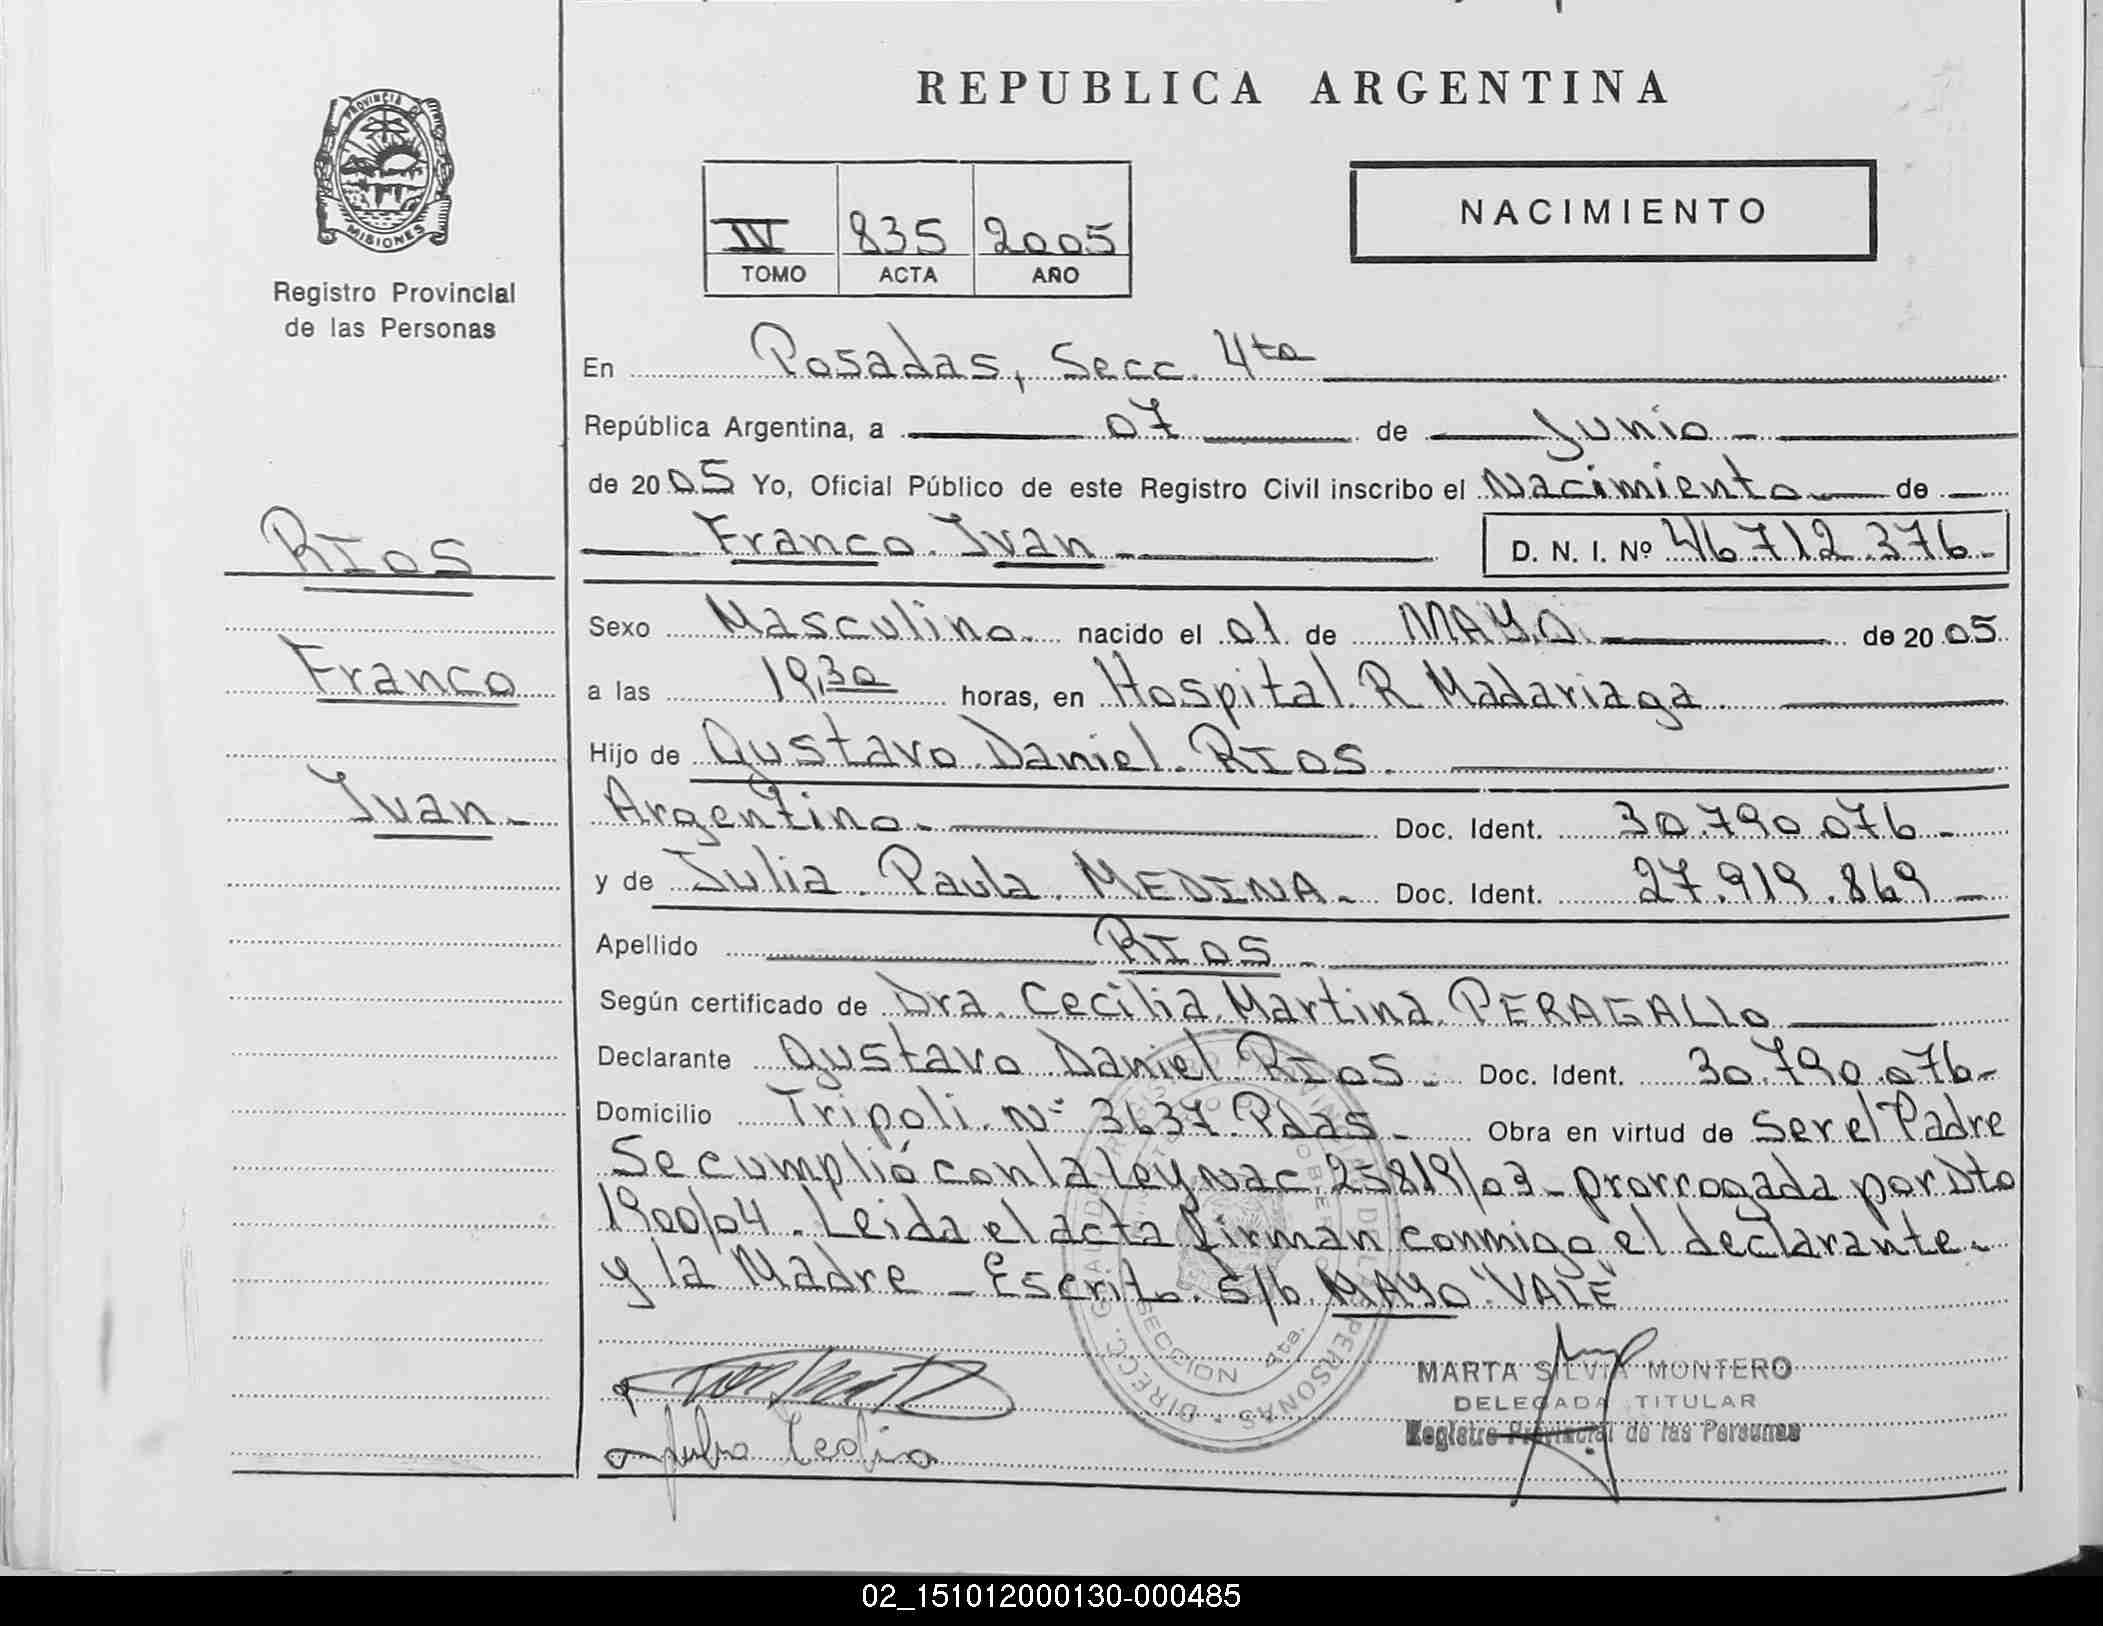 REPUBLICA ARGENTINA
PROVINCIA DE
MISIONES
Registro Provincial
de las Personas
IV 835 2005
TOMO ACTA AÑO
NACIMIENTO
En Posadas, Secc. 4ta
República Argentina, a 07 de Junio
de 2005 Yo, Oficial Público de este Registro Civil inscribo el Nacimiento de
Franco Ivan D. N. I. Nº 46712.376
RIOS
Franco
Ivan
Sexo Masculino nacido el 01 de MAYO de 2005
a las 19,30 horas, en Hospital R Madariaga
Hijo de Gustavo Daniel RIOS
Argentino Doc. Ident. 30.790.076
y de Julia Paula MEDINA Doc. Ident. 27.919.869
Apellido RIOS
Según certificado de Dra. Cecilia Martina PERAGALLO
Declarante Gustavo Daniel RIOS Doc. Ident. 30.790.076
Domicilio Tripoli Nº 3637 Pdas Obra en virtud de ser el Padre
Se cumplió con la Ley Nac. 25819/03 - prorrogada por Dto
1900/04. Leida el acta firman conmigo el declarante
y la Madre - Escrito s/b MAYO "VALE"
SECCION 4ta.
MARTA SILVIA MONTERO
DELEGADA TITULAR
Registro Provincial de las Personas
02_151012000130-000485